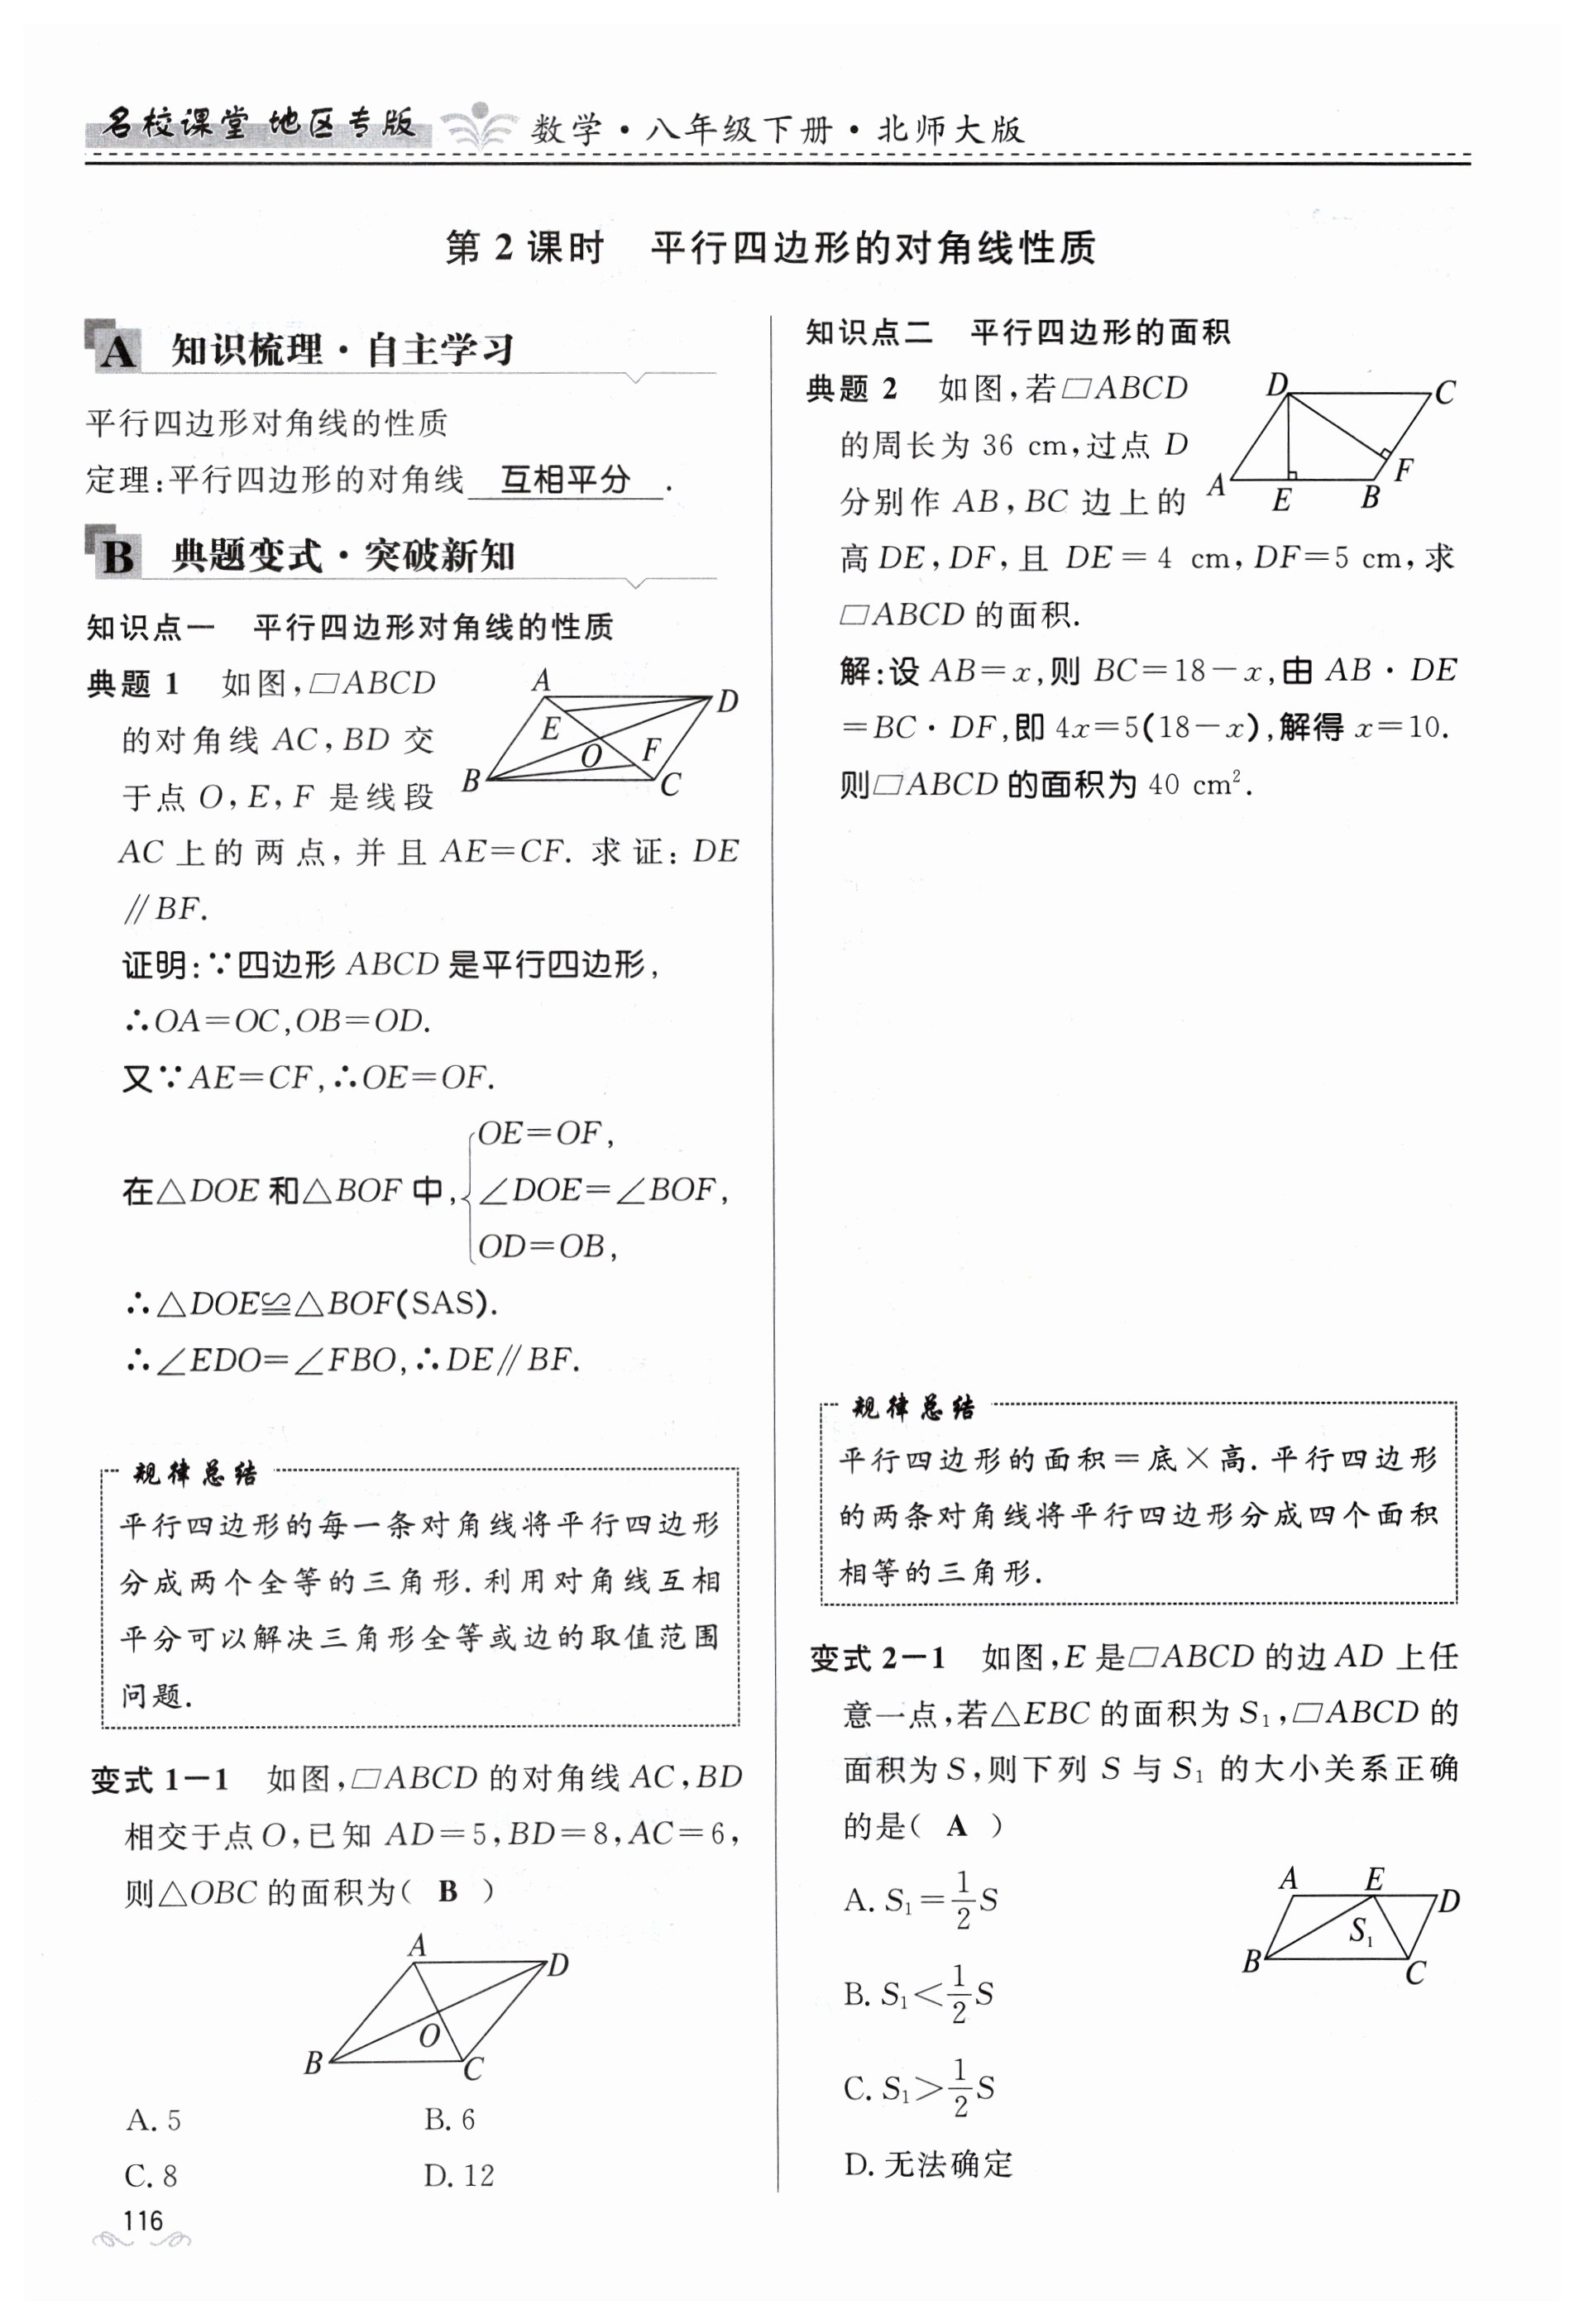 名校课堂 地区专版 数学·八年级下册·北师大版
第 2 课时 平行四边形的对角线性质
A 知识梳理·自主学习
平行四边形对角线的性质
定理:平行四边形的对角线 互相平分 .
B 典题变式·突破新知
知识点一 平行四边形对角线的性质
典题 1 如图,▱ABCD
的对角线 AC,BD 交
于点 O,E,F 是线段
AC 上的两点,并且 AE=CF. 求证:DE
∥BF.
A
D
E
O
F
B
C
证明:∵四边形 ABCD 是平行四边形,
∴OA=OC,OB=OD.
又∵AE=CF,∴OE=OF.
OE=OF,
在△DOE 和△BOF 中,{∠DOE=∠BOF,
OD=OB,
∴△DOE≌△BOF(SAS).
∴∠EDO=∠FBO,∴DE∥BF.
规律总结
平行四边形的每一条对角线将平行四边形
分成两个全等的三角形.利用对角线互相
平分可以解决三角形全等或边的取值范围
问题.
变式 1-1 如图,▱ABCD 的对角线 AC,BD
相交于点 O,已知 AD=5,BD=8,AC=6,
则△OBC 的面积为( B )
A
D
O
B
C
A. 5 B. 6
C. 8 D. 12
116
知识点二 平行四边形的面积
典题 2 如图,若▱ABCD
的周长为 36 cm,过点 D
分别作 AB,BC 边上的
高 DE,DF,且 DE=4 cm,DF=5 cm,求
▱ABCD 的面积.
D
C
F
A
E
B
解:设 AB=x,则 BC=18-x,由 AB·DE
=BC·DF,即 4x=5(18-x),解得 x=10.
则▱ABCD 的面积为 40 cm².
规律总结
平行四边形的面积=底×高.平行四边形
的两条对角线将平行四边形分成四个面积
相等的三角形.
变式 2-1 如图,E 是▱ABCD 的边 AD 上任
意一点,若△EBC 的面积为 S₁,▱ABCD 的
面积为 S,则下列 S 与 S₁ 的大小关系正确
的是( A )
A. S₁=1/2 S
B. S₁<1/2 S
C. S₁>1/2 S
D. 无法确定
A
E
D
S₁
B
C